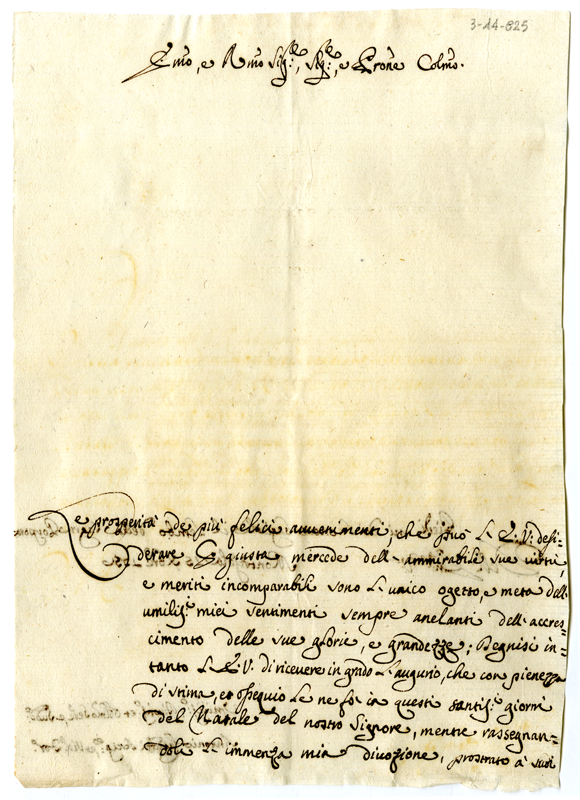 3-44-825
Emo, e Rmo Sig:re, Sig:re, e Prone Colmo.
Le prosperità de più felici avvenimenti che può L'E.V. desi-
derare p giusta mercede dell'ammirabili sue virtù,
e meriti incomparabili sono l'unico ogetto, e meta dell'
umiliss:i miei sentimenti sempre anelanti dell'accres-
cimento delle sue glorie, e grandezze; Degnisi in-
tanto L'E.V. di ricevere in grado l'augurio, che con pienezza
di stima, et ossequio le ne fo in questi santiss:i giorni
del Natale del nostro Signore, mentre rassegnan-
dole l'immenza mia divozione, prostrato a' suoi